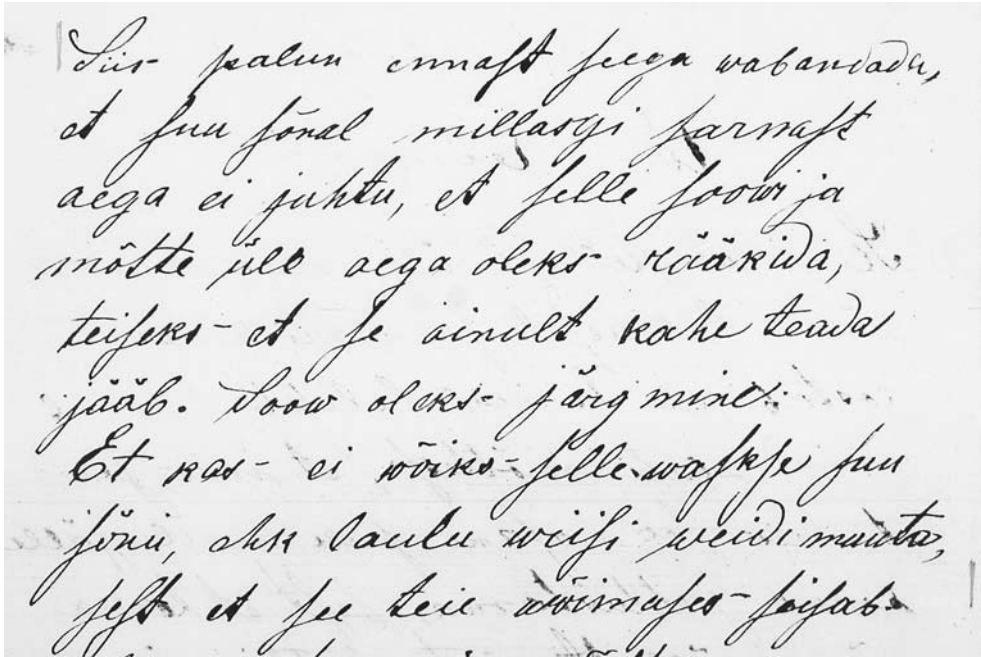 Siis palun ennast seega wabandada,
et suu sõnal millasgi sarnast
aega ei juhtu, et selle soowi ja
mõtte üle aega oleks rääkida,
teiseks et se ainult kahe teada
jääb. Soow oleks järgmine:
Et kas ei wõiks selle waskse suu
sõnu, ehk laulu wiisi weidi muuta,
sest et see teie wõimuses seisab